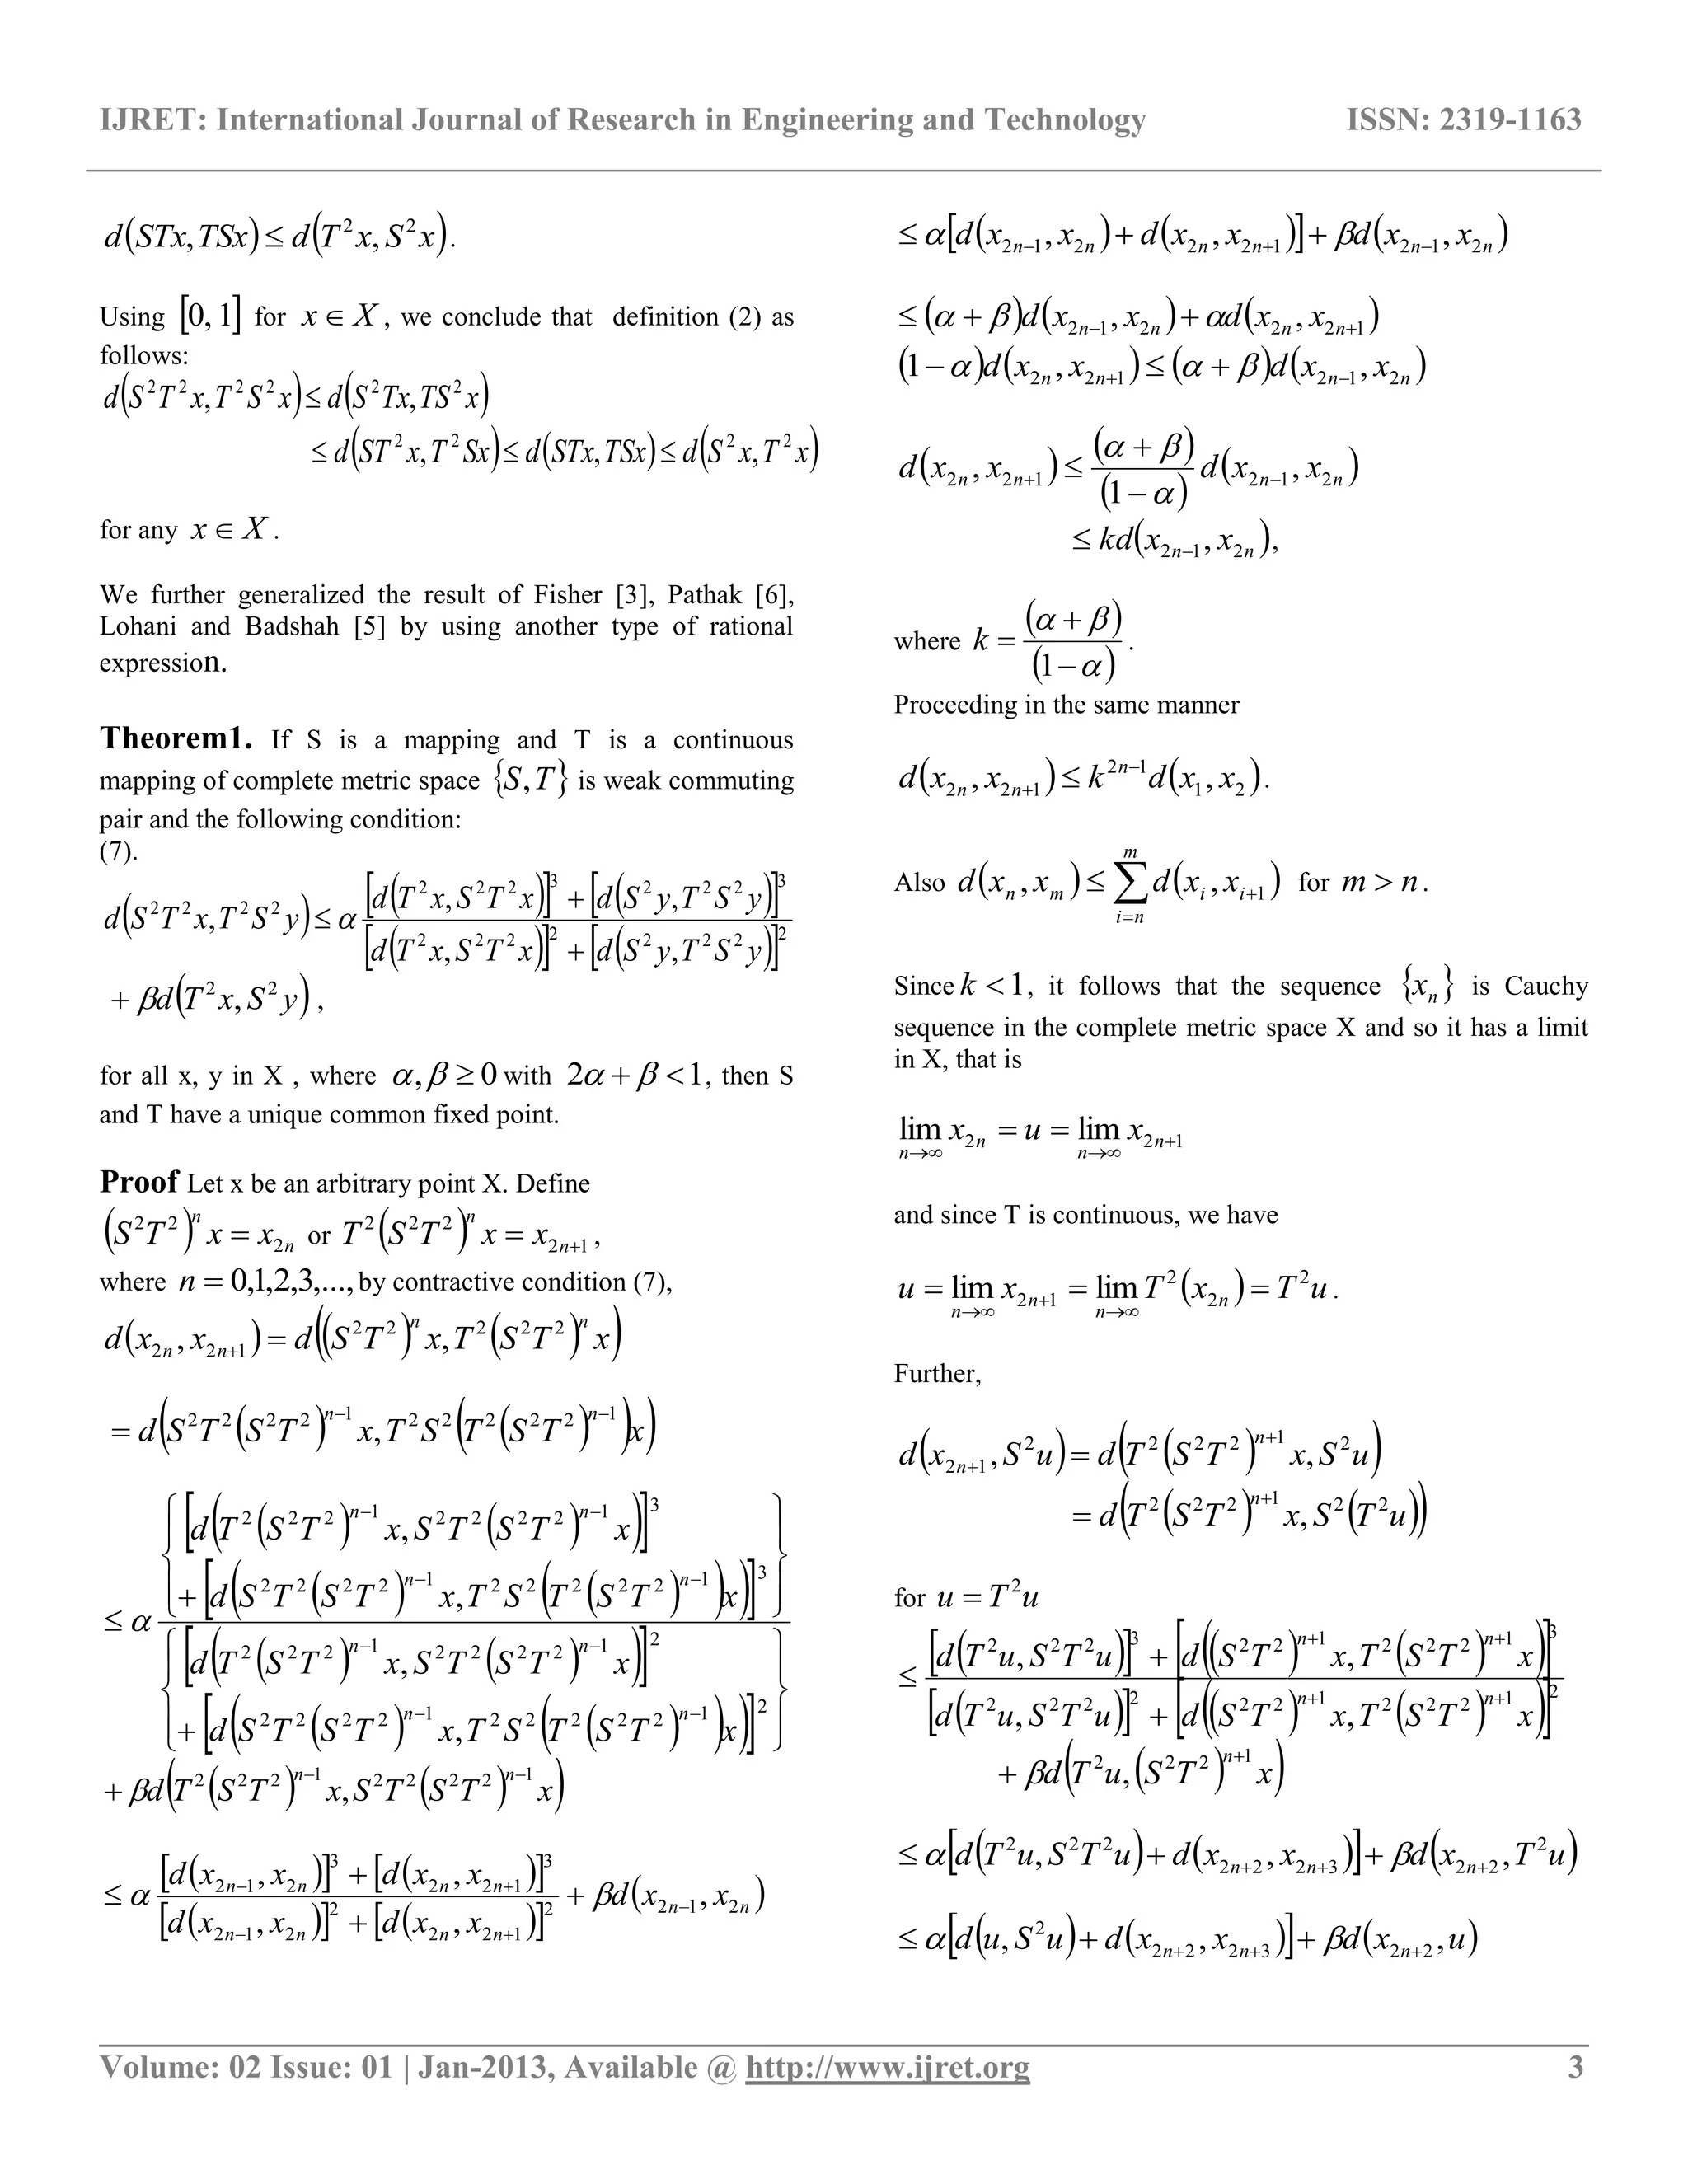 IJRET: International Journal of Research in Engineering and Technology ISSN: 2319-1163
d(STx, TSx) ≤ d(T²x, S²x).
Using [0, 1] for x ∈ X, we conclude that definition (2) as
follows:
d(S²T²x, T²S²x) ≤ d(S²Tx, TS²x)
≤ d(ST²x, T²Sx) ≤ d(STx, TSx) ≤ d(S²x, T²x)
for any x ∈ X.
We further generalized the result of Fisher [3], Pathak [6],
Lohani and Badshah [5] by using another type of rational
expression.
Theorem1. If S is a mapping and T is a continuous
mapping of complete metric space {S, T} is weak commuting
pair and the following condition:
(7).
d(S²T²x, T²S²y) ≤ α ([d(T²x, S²T²x)]³ + [d(S²y, T²S²y)]³) / ([d(T²x, S²T²x)]² + [d(S²y, T²S²y)]²)
+ βd(T²x, S²y),
for all x, y in X , where α, β ≥ 0 with 2α + β < 1, then S
and T have a unique common fixed point.
Proof Let x be an arbitrary point X. Define
(S²T²)ⁿ x = x₂ₙ or T²(S²T²)ⁿ x = x₂ₙ₊₁,
where n = 0,1,2,3,..., by contractive condition (7),
d(x₂ₙ, x₂ₙ₊₁) = d((S²T²)ⁿ x, T²(S²T²)ⁿ x)
= d(S²T²(S²T²)ⁿ⁻¹ x, T²S²(T²(S²T²)ⁿ⁻¹)x)
≤ α { [d(T²(S²T²)ⁿ⁻¹ x, S²T²(S²T²)ⁿ⁻¹ x)]³
+ [d(S²T²(S²T²)ⁿ⁻¹ x, T²S²(T²(S²T²)ⁿ⁻¹)x)]³ }
/ { [d(T²(S²T²)ⁿ⁻¹ x, S²T²(S²T²)ⁿ⁻¹ x)]²
+ [d(S²T²(S²T²)ⁿ⁻¹ x, T²S²(T²(S²T²)ⁿ⁻¹)x)]² }
+ βd(T²(S²T²)ⁿ⁻¹ x, S²T²(S²T²)ⁿ⁻¹ x)
≤ α ([d(x₂ₙ₋₁, x₂ₙ)]³ + [d(x₂ₙ, x₂ₙ₊₁)]³) / ([d(x₂ₙ₋₁, x₂ₙ)]² + [d(x₂ₙ, x₂ₙ₊₁)]²) + βd(x₂ₙ₋₁, x₂ₙ)
≤ α[d(x₂ₙ₋₁, x₂ₙ) + d(x₂ₙ, x₂ₙ₊₁)] + βd(x₂ₙ₋₁, x₂ₙ)
≤ (α + β)d(x₂ₙ₋₁, x₂ₙ) + αd(x₂ₙ, x₂ₙ₊₁)
(1 − α)d(x₂ₙ, x₂ₙ₊₁) ≤ (α + β)d(x₂ₙ₋₁, x₂ₙ)
d(x₂ₙ, x₂ₙ₊₁) ≤ (α + β)/(1 − α) d(x₂ₙ₋₁, x₂ₙ)
≤ kd(x₂ₙ₋₁, x₂ₙ),
where k = (α + β)/(1 − α).
Proceeding in the same manner
d(x₂ₙ, x₂ₙ₊₁) ≤ k²ⁿ⁻¹d(x₁, x₂).
Also d(xₙ, xₘ) ≤ ∑ᵢ₌ₙᵐ d(xᵢ, xᵢ₊₁) for m > n.
Since k < 1, it follows that the sequence {xₙ} is Cauchy
sequence in the complete metric space X and so it has a limit
in X, that is
lim n→∞ x₂ₙ = u = lim n→∞ x₂ₙ₊₁
and since T is continuous, we have
u = lim n→∞ x₂ₙ₊₁ = lim n→∞ T²(x₂ₙ) = T²u.
Further,
d(x₂ₙ₊₁, S²u) = d(T²(S²T²)ⁿ⁺¹ x, S²u)
= d(T²(S²T²)ⁿ⁺¹ x, S²(T²u))
for u = T²u
≤ ([d(T²u, S²T²u)]³ + [d((S²T²)ⁿ⁺¹ x, T²(S²T²)ⁿ⁺¹ x)]³) / ([d(T²u, S²T²u)]² + [d((S²T²)ⁿ⁺¹ x, T²(S²T²)ⁿ⁺¹ x)]²)
+ βd(T²u, (S²T²)ⁿ⁺¹ x)
≤ α[d(T²u, S²T²u) + d(x₂ₙ₊₂, x₂ₙ₊₃)] + βd(x₂ₙ₊₂, T²u)
≤ α[d(u, S²u) + d(x₂ₙ₊₂, x₂ₙ₊₃)] + βd(x₂ₙ₊₂, u)
Volume: 02 Issue: 01 | Jan-2013, Available @ http://www.ijret.org 3